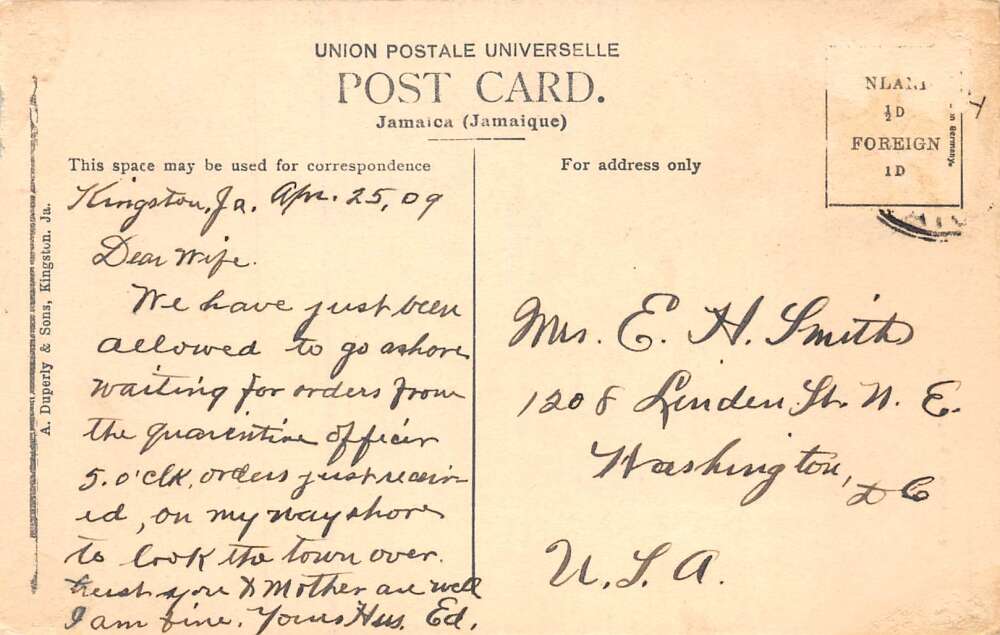 UNION POSTALE UNIVERSELLE
POST CARD.
Jamaica (Jamaique)
This space may be used for correspondence
For address only
½D
FOREIGN
1D
in Germany.
A. Duperly & Sons, Kingston. Ja.
Kingston, Ja. Apr. 25, 09
Dear Wife.
We have just been
allowed to go ashore
waiting for orders from
the quarentine officer
5. o'clk, orders just receiv
ed, on my way shore
to look the town over.
trust you & Mother are well
I am fine. Yours Hus. Ed.
Mrs. E. H. Smith
1208 Linden St. N. E.
Washington, D C
U. S. A.